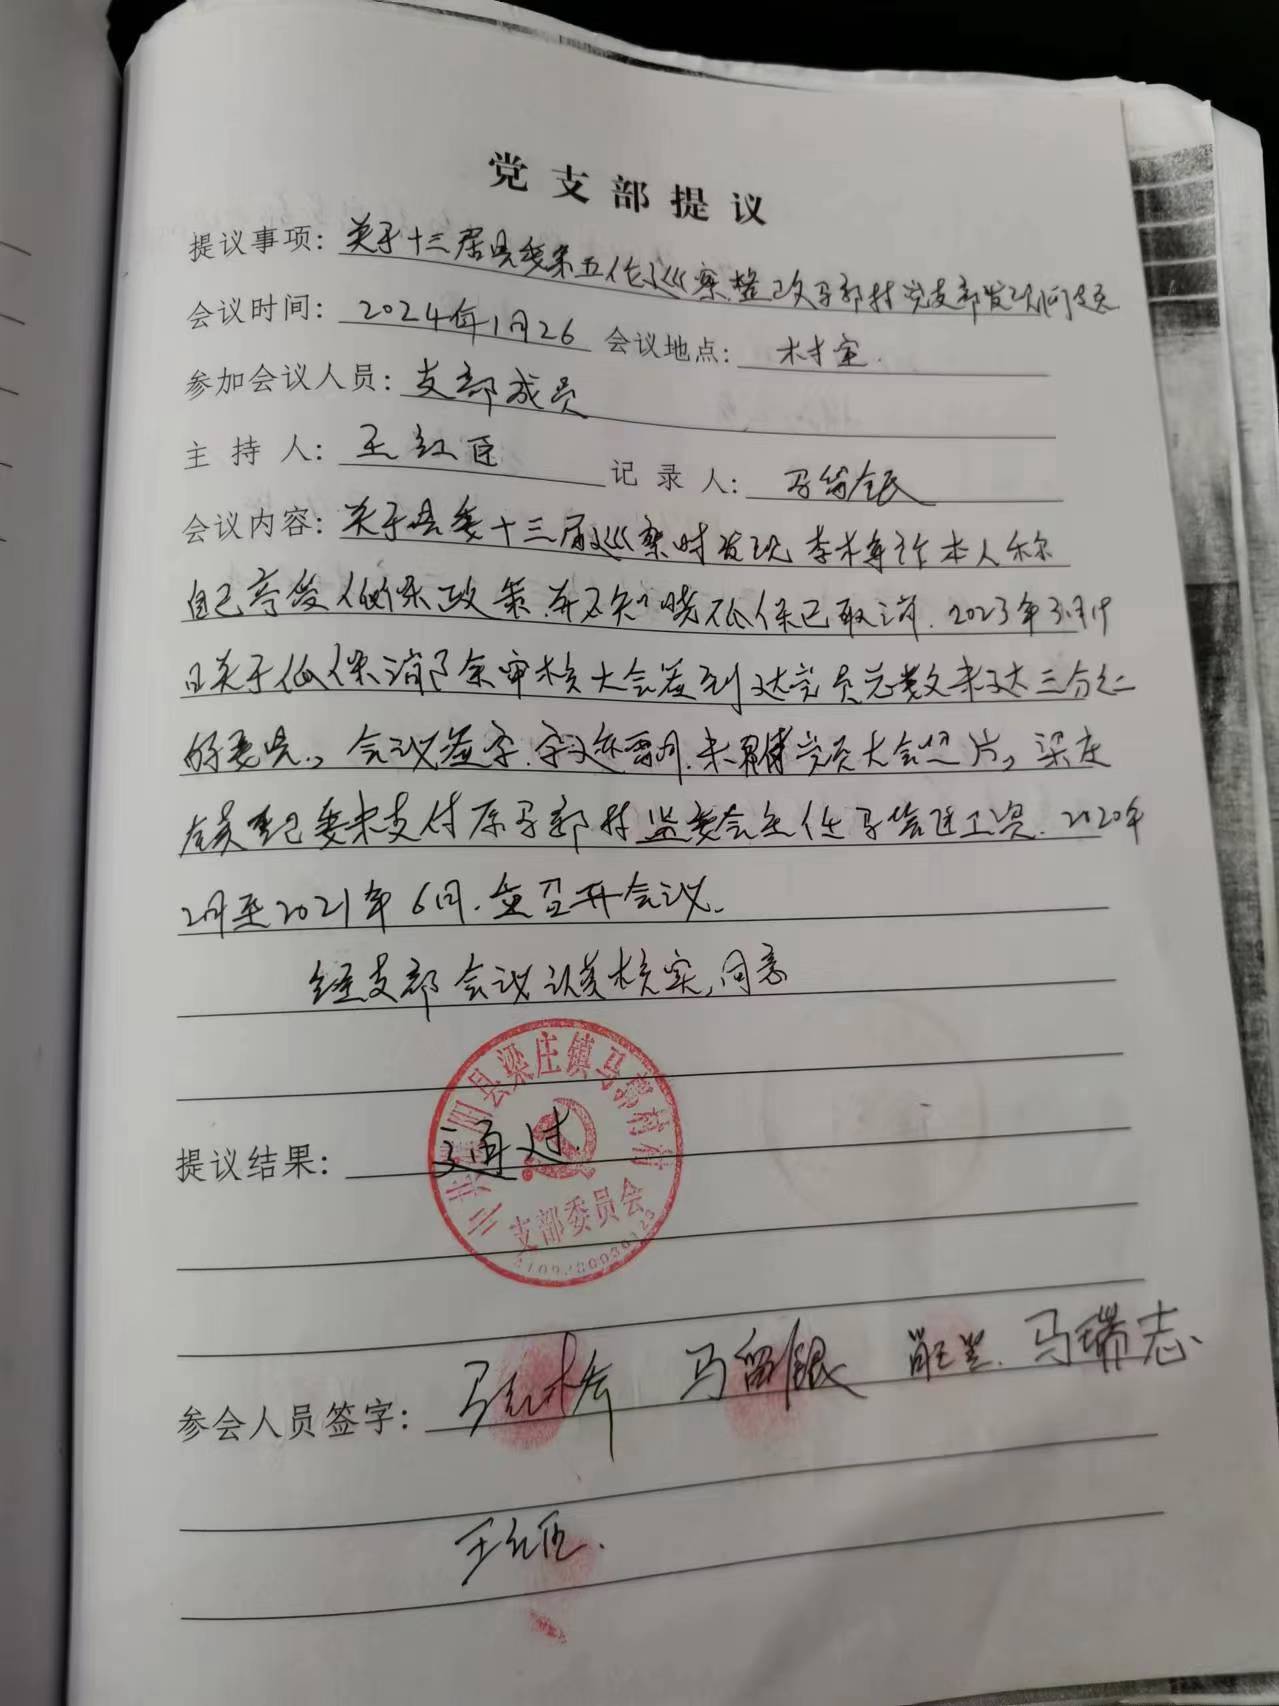 党支部提议
提议事项：关于十三届县委第五轮巡察整改马郭村党支部发现问题
会议时间：2024年1月26 会议地点：村室.
参加会议人员：支部成员
主持人：王红臣 记录人：马留银
会议内容：关于县委十三届巡察时发现李本人称
自己享受低保政策,并不知晓低保已取消. 2023年3月19
日关于低保消除审核大会签到达党员总数未达三分之二
的意见., 会议签字.字迹雷同.未附党员大会照片, 梁庄
纪委未支付原马郭村监委会主任马工资. 2020年
2月至2021年6月.无召开会议.
经支部会议认真核实,同意
提议结果：通过.
中共阳县梁庄镇马郭村
支部委员会
参会人员签字：马 马留银 马瑞志
王红臣.